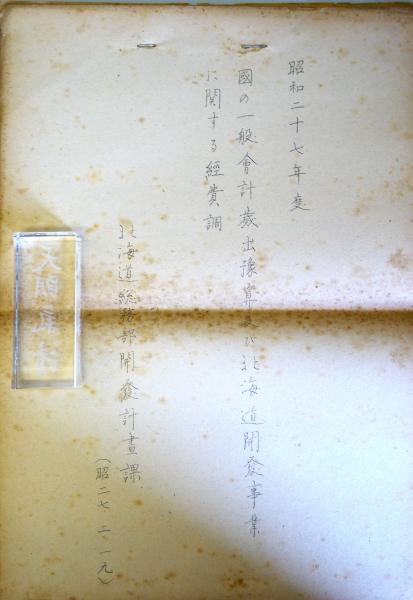 昭和二十七年度
國の一般會計歳出豫算及び北海道開発事業
に関する経費調
北海道総務部開発計畫課
(昭二七、二、一九)